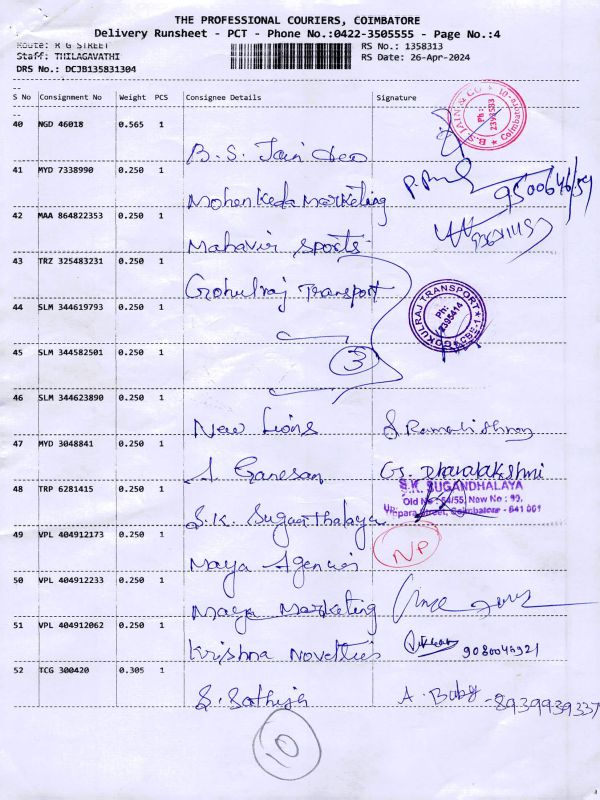 THE PROFESSIONAL COURIERS, COIMBATORE
Delivery Runsheet - PCT - Phone No.:0422-3505555 - Page No.:4
Route: R G STREET RS No.: 1358313
Staff: THILAGAVATHI RS Date: 26-Apr-2024
DRS No.: DCJB135831304
S No Consignment No Weight PCS Consignee Details Signature
40 NGD 46018 0.565 1
B.S. Jain &co
B.S JAIN & CO Ph: Coimbatore-01
41 MYD 7338990 0.250 1
Mohen Keda Marketing
42 MAA 864822353 0.250 1
Mahavir sports
43 TRZ 325483231 0.250 1
Gokulraj Transport
GOKULRAJ TRANSPORT Ph: 2395414 CBE-1
44 SLM 344619793 0.250 1
3
45 SLM 344582501 0.250 1
46 SLM 344623890 0.250 1
New Lions
47 MYD 3048841 0.250 1
A Ganesan
48 TRP 6281415 0.250 1
S.K. SUGANDHALAYA
Old No : 54/55, New No : 99,
Street, Coimbatore - 641 001
S.K. Suganthalaya
49 VPL 404912173 0.250 1
N/P
Maya Agencies
50 VPL 404912233 0.250 1
Maya Marketing
51 VPL 404912062 0.250 1
Krishna Novelties 9080049921
52 TCG 300420 0.305 1
S. Sathiya A. Baby - 8939939337
10